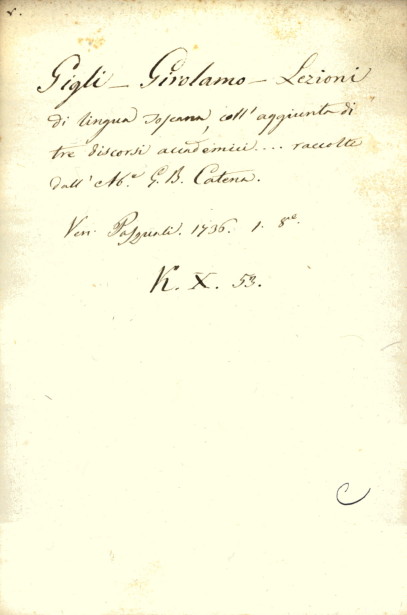 Gigli - Girolamo - Lezioni
di lingua toscana, coll'aggiunta di
tre discorsi accademici.... raccolte
dall' Ab.e G. B. Catena.
Ven. Pasquali. 1736. 1. 8.ve
K. X. 53.
C